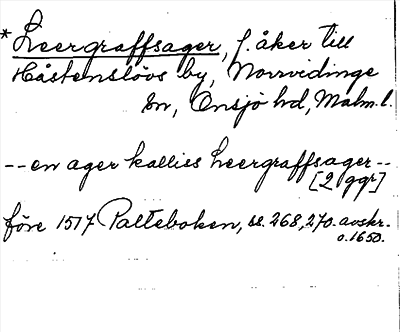 *Leergraffsager, f. åker till
Håstenslövs by, Norrvidinge
sn, Onsjö hd, Malm.l.
--en ager kalliss Leergraffsager--
[2 ggr]
före 1517 Palteboken, ss. 268, 270. avskr.
o. 1650.